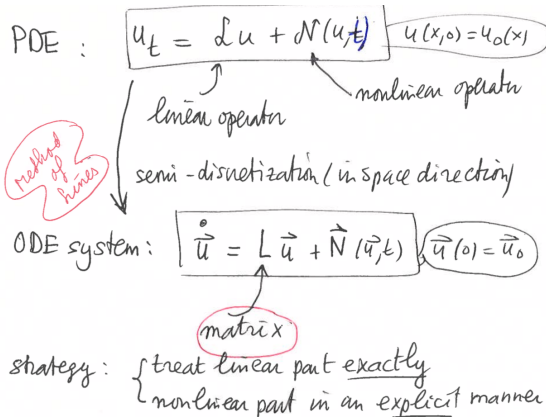 PDE : u_t = ℒu + 𝒩(u,t) u(x,0) = u_0(x)
linear operator
nonlinear operator
method of lines
semi-discretization (in space direction)
ODE system: \dot{\vec{u}} = L \vec{u} + \vec{N}(\vec{u},t) , \vec{u}(0) = \vec{u}_0
matrix
strategy : { treat linear part exactly
nonlinear part in an explicit manner